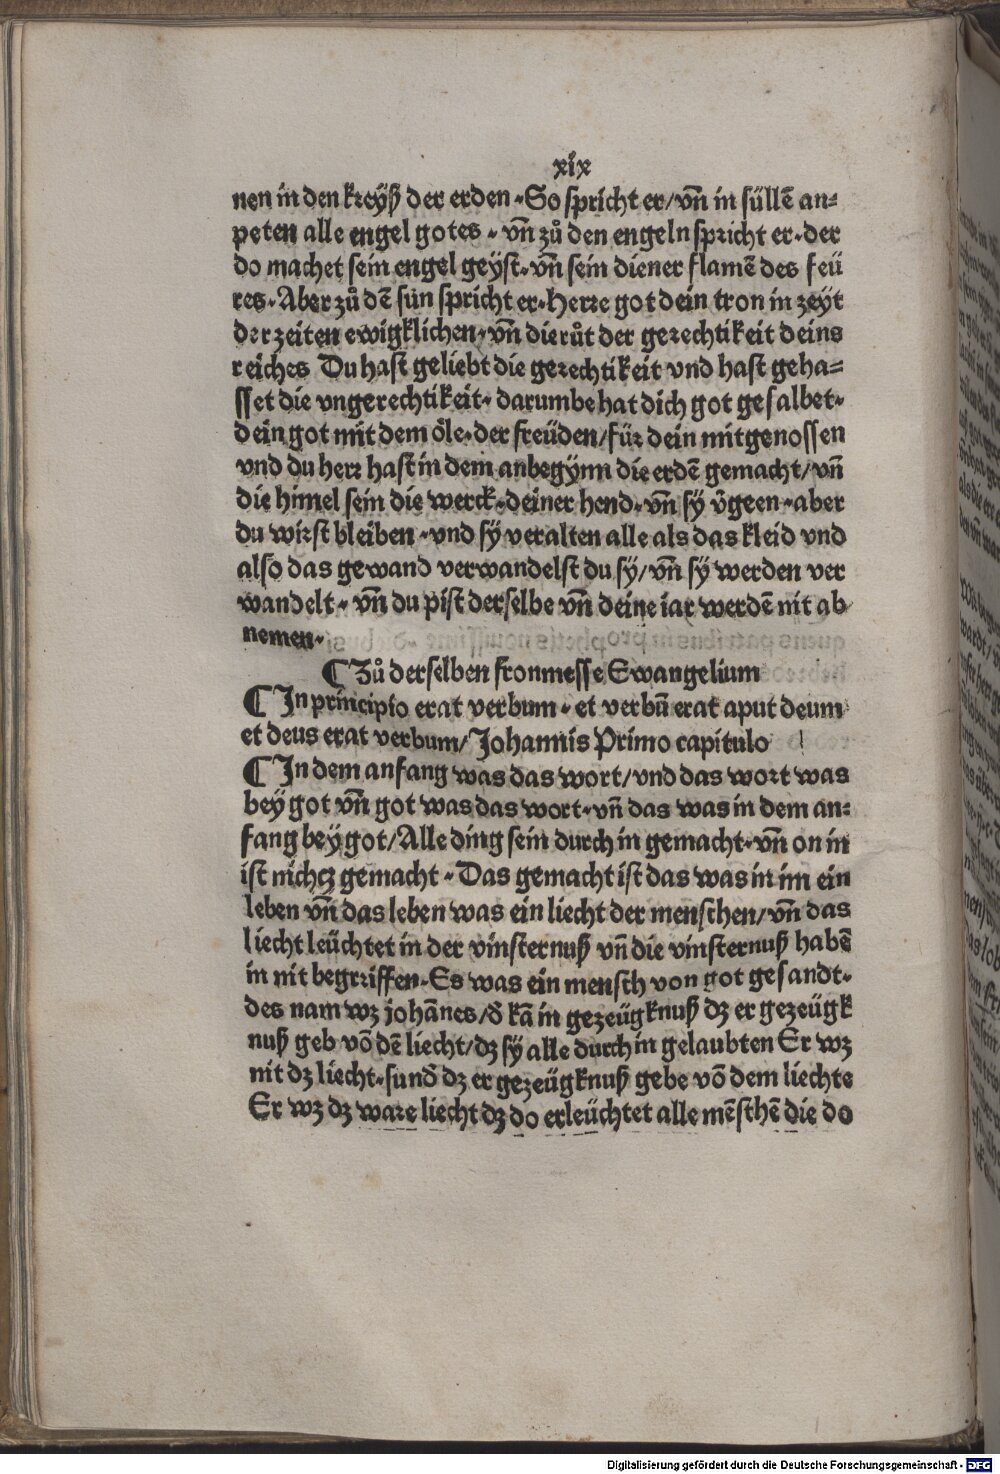 xix
nen in den kreyß der erden · So spricht er/ vn̄ in süllē an⸗
peten alle engel gotes · vn̄ zů den engeln spricht er · der
do machet sein engel geyst · vn̄ sein diener flamē des feü
res · Aber zů dē sun spricht er · Herre got dein tron in zeyt
der zeiten ewigklichen · vn̄ die růt der gerechtikeit deins
reiches Du hast geliebt die gerechtikeit vnd hast geha⸗
sset die vngerechtikeit · darumbe hat dich got gesalbet ·
dein got mit dem öle · der freüden/ für dein mitgenossen
vnd du herr hast in dem anbegynn die erdē gemacht/ vn̄
die himel sein die werck · deiner hend · vn̄ sÿ v̄geen · aber
du wirst bleiben · vnd sÿ veralten alle als das kleid vnd
also das gewand verwandelst du sÿ/ vn̄ sÿ werden ver
wandelt · vn̄ du pist derselbe vn̄ deine iar werdē nit ab
nemen ·
¶ Zů derselben fronmesse Ewangelium
¶ In principio erat verbum · et verbū erat aput deum
et deus erat verbum/ Johannis Primo capitulo
¶ In dem anfang was das wort/ vnd das wort was
beÿ got vn̄ got was das wort · vn̄ das was in dem an⸗
fang beÿ got/ Alle ding sein durch in gemacht · vn̄ on in
ist nichcz gemacht · Das gemacht ist das was in im ein
leben vn̄ das leben was ein liecht der menschen/ vn̄ das
liecht leüchtet in der vinsternuß vn̄ die vinsternuß habē
in nit begrriffen · Es was ein mensch von got gesandt ·
des nam wz johānes/ d̄ kā in gezeügknuß dz er gezeügk
nuß geb vō dē liecht/ dz sÿ alle durch in gelaubten Er wz
nit dz liecht · sund̄ dz er gezeügknuß gebe vō dem liechte
Er wz dz ware liecht dz do erleüchtet alle mēschē die do
Digitalisierung gefördert durch die Deutsche Forschungsgemeinschaft - DFG